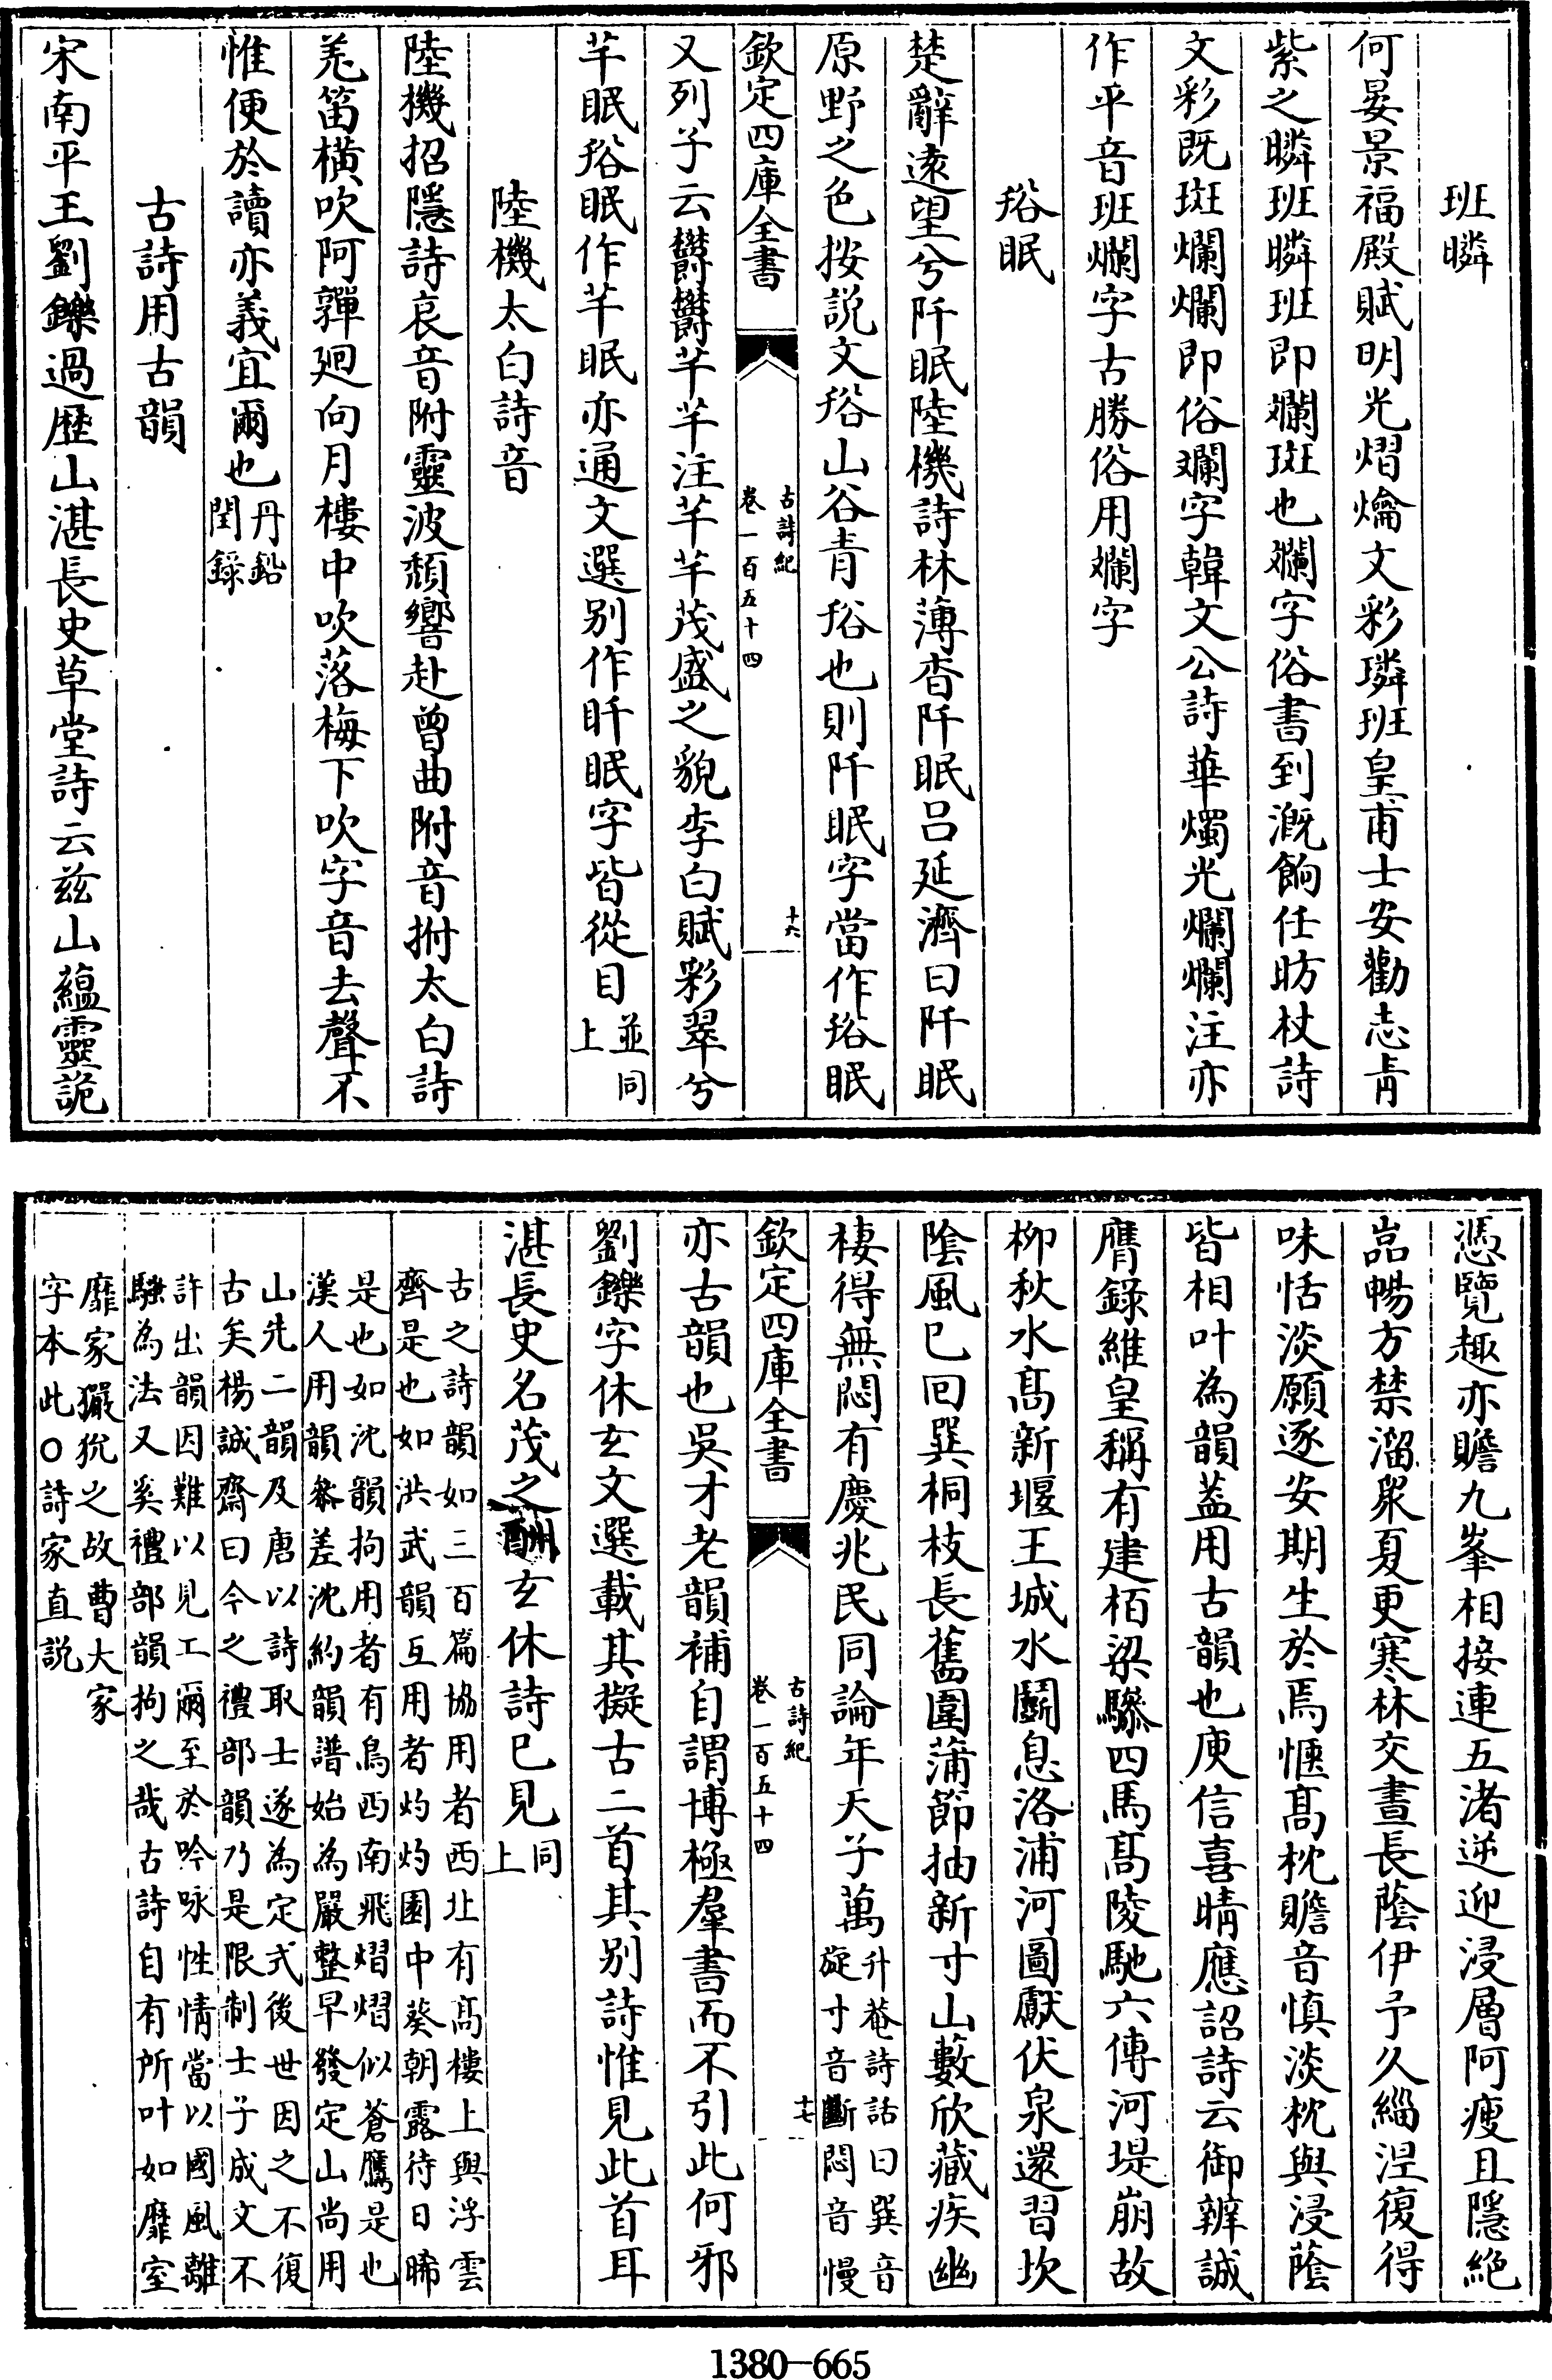 班瞵
何晏景福殿賦明光熠爚文彩璘班皇甫士安勸志青
紫之瞵班瞵班即斕斑也斕字俗書到溉餉任昉杖詩
文彩既斑斕斕即俗斕字韓文公詩華燭光爛爛注亦
作平音班斕字古勝俗用斕字
䜭眠
楚辭遠望兮阡眠陸機詩林薄杳阡眠呂延濟曰阡眠
原野之色按説文䜭山谷青䜭也則阡眠字當作䜭眠
欽定四庫全書
古詩紀
卷一百五十四
十六
又列子云欝欝芊芊注芊芊茂盛之貌李白賦彩翠兮
芊眠䜭眠作芊眠亦通文選别作盰眠字皆從目並同
上
陸機太白詩音
陸機招隱詩哀音附靈波頽響赴曾曲附音拊太白詩
羌笛横吹阿嚲廻向月樓中吹落梅下吹字音去聲不
惟便於讀亦義宜爾也丹鉛
閏録
古詩用古韻
宋南平王劉鑠過歷山湛長史草堂詩云兹山蘊靈詭
憑覽趣亦贍九峯相接連五渚逆迎浸層阿瘦且隱絶
嵓暢方禁溜衆夏更寒林交晝長蔭伊予久緇涅復得
味恬淡願逐安期生於焉愜髙枕贍音慎淡枕與浸蔭
皆相叶為韻葢用古韻也庾信喜晴應詔詩云御辨誠
膺錄維皇稱有建栢梁驂四馬髙陵馳六傳河堤崩故
柳秋水髙新堰王城水鬭息洛浦河圖獻伏泉還習坎
陰風已回巽桐枝長舊圍蒲節抽新寸山藪欣藏疾幽
棲得無悶有慶兆民同論年天子萬升菴詩話曰巽音
旋寸音斷悶音慢
欽定四庫全書
古詩紀
卷一百五十四
十七
亦古韻也吳才老韻補自謂博極羣書而不引此何邪
劉鑠字休玄文選載其擬古二首其别詩惟見此首耳
湛長史名茂之酬玄休詩已見同
上
古之詩韻如三百篇協用者西北有髙樓上與浮雲
齊是也如洪武韻互用者灼灼園中葵朝露待日晞
是也如沈韻拘用者有鳥西南飛熠熠似蒼鷹是也
漢人用韻叅差沈約韻譜始為嚴整早發定山尚用
山先二韻及唐以詩取士遂為定式後世因之不復
古矣楊誠齋曰今之禮部韻乃是限制士子成文不
許出韻因難以見工爾至於吟咏性情當以國風離
騷為法又奚禮部韻拘之哉古詩自有所叶如靡室
靡家玁狁之故曹大家
字本此○詩家直説
1380—665